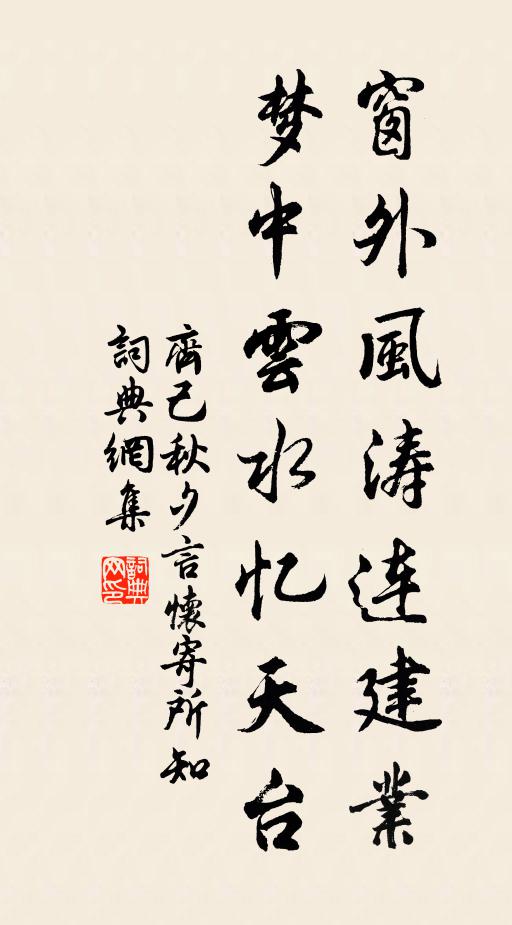 窗外風涛連建業
梦中雲水忆天台
齊己秋夕言懷寄所知
詞典網集
詞典网印